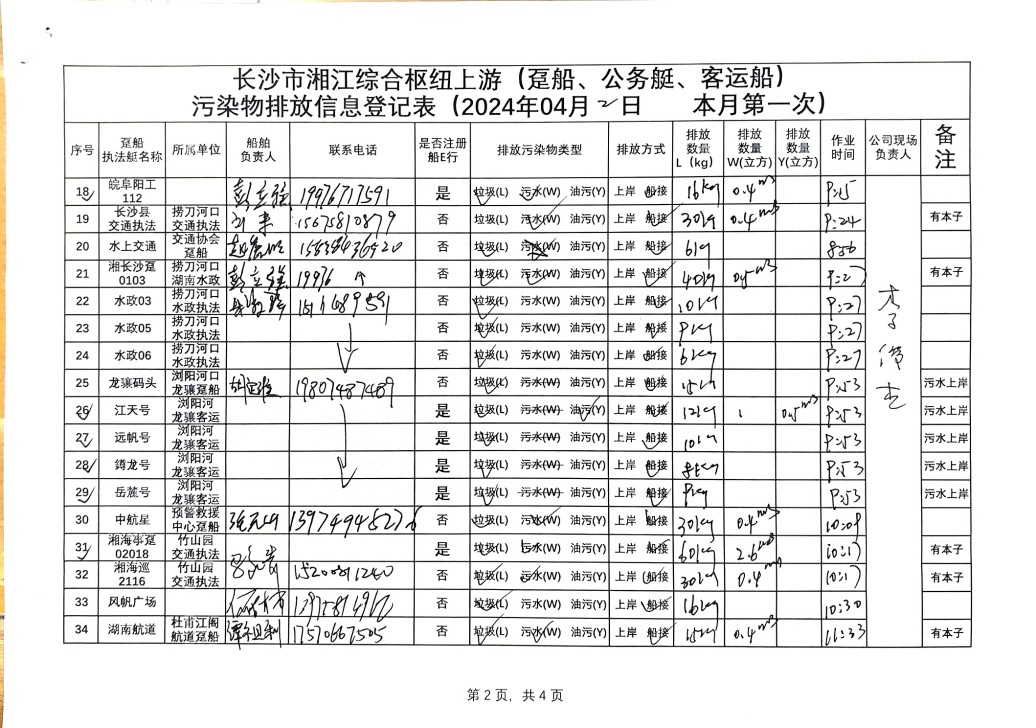 长沙市湘江综合枢纽上游（趸船、公务艇、客运船）
污染物排放信息登记表（2024年04月2日 本月第一次）
序号 趸船执法艇名称 所属单位 船舶负责人 联系电话 是否注册船E行 排放污染物类型 排放方式 排放数量L（kg） 排放数量W(立方) 排放数量Y(立方) 作业时间 公司现场负责人 备注
18 皖阜阳工112 彭立强 19976717591 是 垃圾(L) 污水(W) 油污(Y) 上岸 船接 16kg 0.4m3
19 长沙县交通执法 捞刀河口交通执法 15675810879 否 垃圾(L) 污水(W) 油污(Y) 上岸 船接 30kg 0.4m3 9:24 有本子
20 水上交通 交通协会趸船 否 垃圾(L) 污水(W) 油污(Y) 上岸 船接 6kg 856
21 湘长沙趸0103 捞刀河口湖南水政 彭立强 19976 否 垃圾(L) 污水(W) 油污(Y) 上岸 船接 40kg 9:27 有本子
22 水政03 捞刀河口水政执法 否 垃圾(L) 污水(W) 油污(Y) 上岸 船接 10kg 9:27
23 水政05 捞刀河口水政执法 否 垃圾(L) 污水(W) 油污(Y) 上岸 船接 9kg 9:27
24 水政06 捞刀河口水政执法 否 垃圾(L) 污水(W) 油污(Y) 上岸 船接 6kg 9:27
25 龙骧码头 浏阳河口龙骧趸船 19807487489 否 垃圾(L) 污水(W) 油污(Y) 上岸 船接 15kg 9:53 污水上岸
26 江天号 浏阳河龙骧客运 是 垃圾(L) 污水(W) 油污(Y) 上岸 船接 12kg 9:53 污水上岸
27 远帆号 浏阳河龙骧客运 是 垃圾(L) 污水(W) 油污(Y) 上岸 船接 10kg 9:53 污水上岸
28 鐏龙号 浏阳河龙骧客运 是 垃圾(L) 污水(W) 油污(Y) 上岸 船接 8kg 9:53 污水上岸
29 岳麓号 浏阳河龙骧客运 是 垃圾(L) 污水(W) 油污(Y) 上岸 船接 9kg 9:53 污水上岸
30 中航星 预警救援中心趸船 否 垃圾(L) 污水(W) 油污(Y) 上岸 船接 30kg 0.4m3 10:09
31 湘海事趸02018 竹山园交通执法 是 垃圾(L) 污水(W) 油污(Y) 上岸 船接 60kg 2.6m3 10:17 有本子
32 湘海巡2116 竹山园交通执法 否 垃圾(L) 污水(W) 油污(Y) 上岸 船接 30kg 0.4m3 10:17 有本子
33 风帆广场 13975814962 否 垃圾(L) 污水(W) 油污(Y) 上岸 船接 16kg 10:30
34 湖南航道 杜甫江阁航道趸船 17570667505 否 垃圾(L) 污水(W) 油污(Y) 上岸 船接 15kg 0.4m3 11:33 有本子
第 2 页，共 4 页